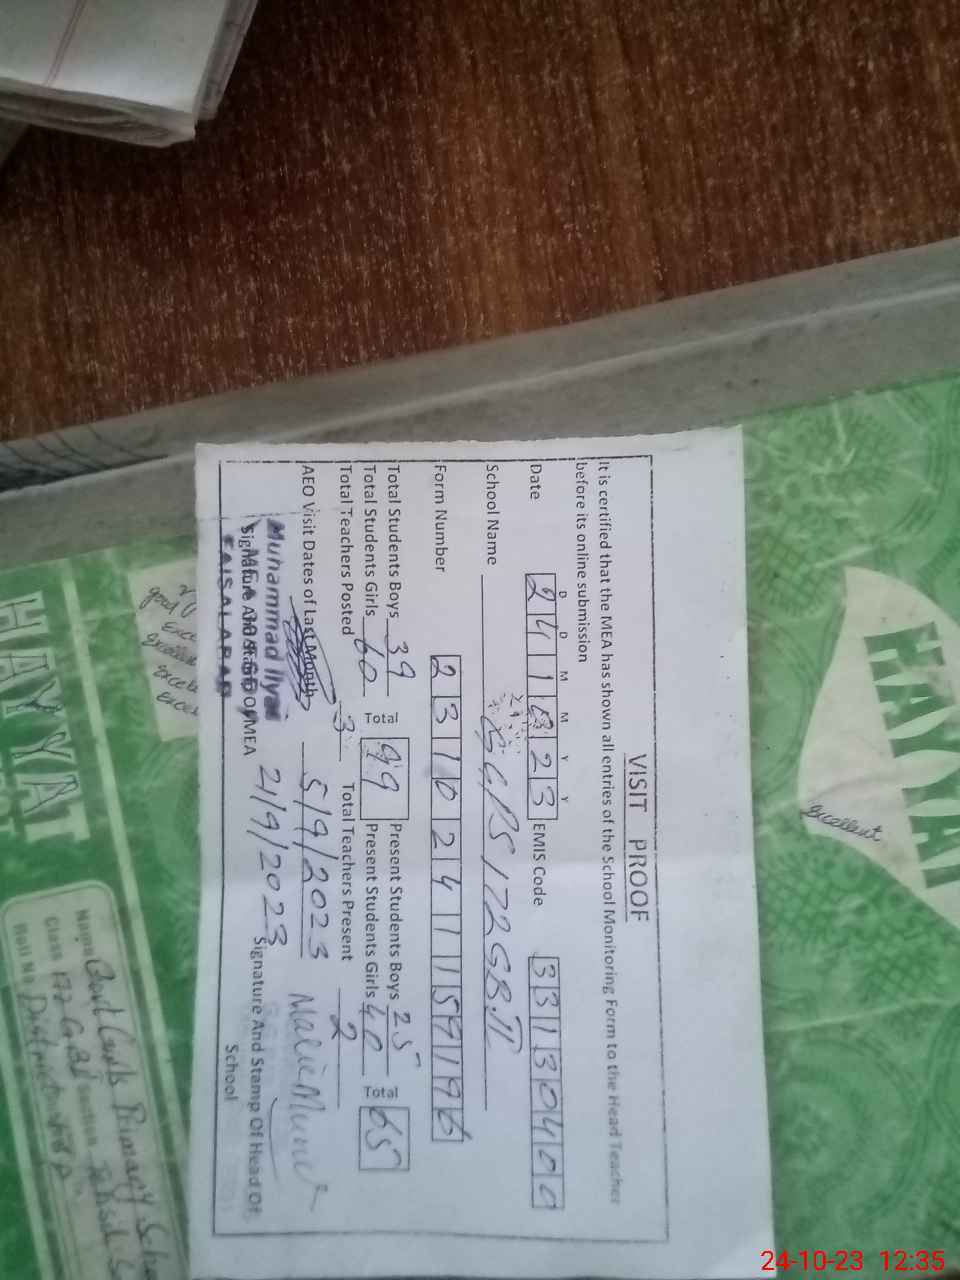 VISIT PROOF
It is certified that the MEA has shown all entries of the School Monitoring Form to the Head Teacher
before its online submission
D D M M Y Y
Date 24 10 23 EMIS Code 33130400
School Name GGPS 172 GB II
Form Number
Total Students Boys 39 Total 99 Present Students Boys 25 Total 65
Total Students Girls 60 Present Students Girls 40
Total Teachers Posted 3 Total Teachers Present 2
AEO Visit Dates of Last Month 5/9/2023
21/9/2023
Muhammad Ilyas
Signature And Stamp Of MEA
FAISALABAD
Signature And Stamp Of Head Of
School
HAYYAT
excellent
HAYYAT
good
Excellent
Name Govt Girls Primary
Class 172 GB
Roll No District
24-10-23 12:35